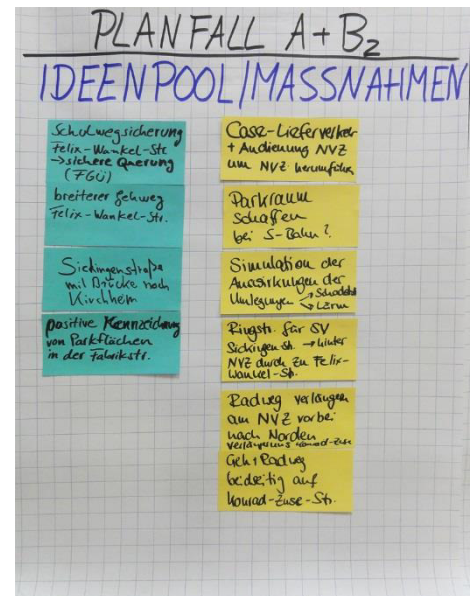 PLANFALL A+B2
IDEENPOOL/MASSNAHMEN
Schulwegsicherung
Felix-Wankel-Str
→ sichere Querung
(FGÜ)
breiterer Gehweg
Felix-Wankel-Str.
Sickingenstraße
mit Brücke nach
Kirchheim
positive Kennzeichnung
von Parkflächen
in der Fabrikstr.
Case-Lieferverkehr
+ Andienung NVZ
um NVZ herumführen
Parkraum
schaffen
bei S-Bahn?
Simulation der
Auswirkungen der
Umlegungen → Schadst.
→ Lärm
Ringstr. für SV
Sickingenstr. → hinter
NVZ durch zu Felix-
Wankel-Str.
Radweg verlängern
am NVZ vorbei
nach Norden
Verlängerung Konrad-Zuse
Geh+Radweg
beidseitig auf
Konrad-Zuse-Str.